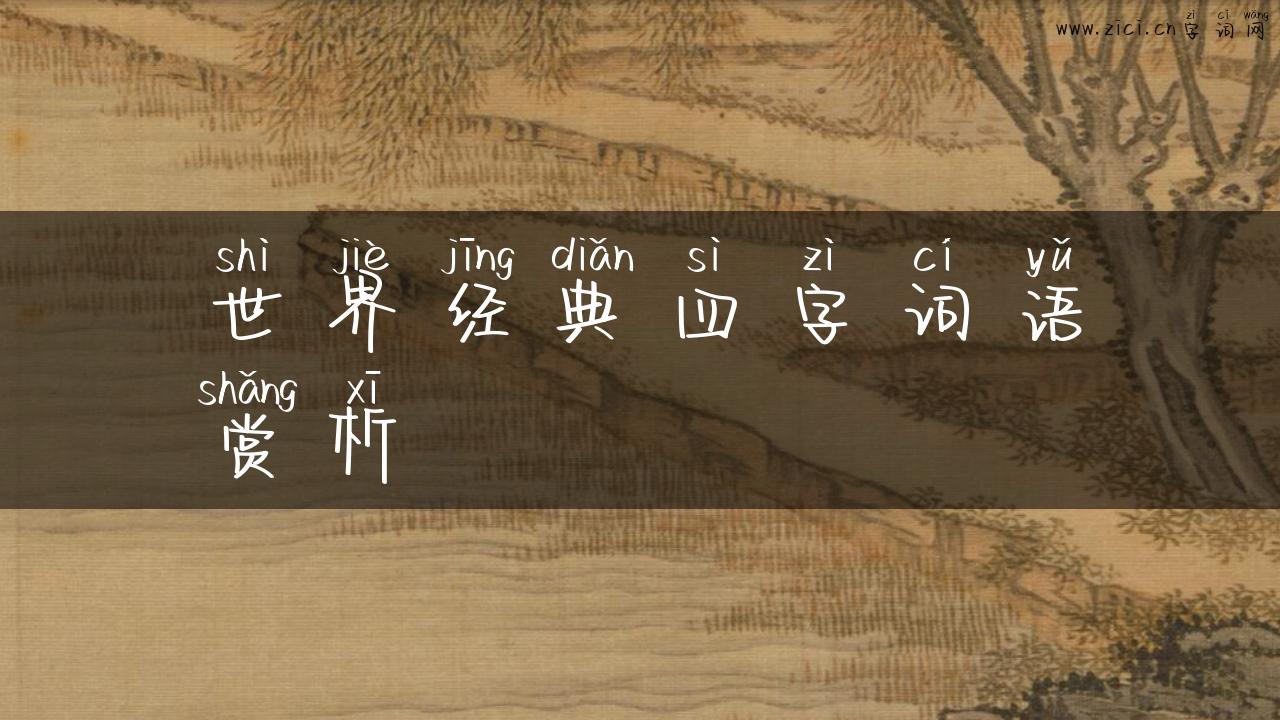 zì cí wǎng
www.zici.cn 字 词 网
shì jiè jīng diǎn sì zì cí yǔ
世 界 经 典 四 字 词 语
shǎng xī
赏 析